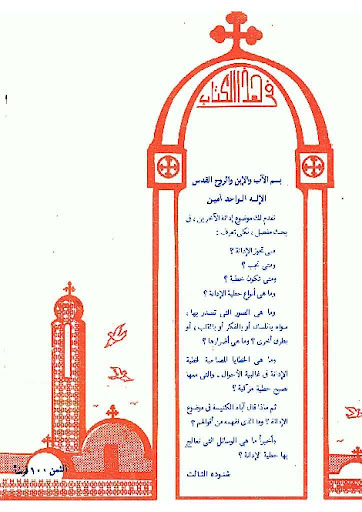 في هذا الكتاب
بسم الآب والإبن والروح القدس
الإله الواحد آمين
نقدم لك موضوع إدانة الآخرين ، فى
بحث مفصل ، لكى تعرف :
متى تجوز الإدانة ؟
ومتى تجب ؟
ومتى تكون خطية ؟
وما هى أنواع خطية الإدانة ؟
وما هى الصور التى تصدر بها ،
سواء باللسان أو بالفكر أو بالقلب ، أو
بطرق أخرى ؟ وما هى أضرارها ؟
وما هى الخطايا المصاحبة لخطية
الإدانة فى غالبية الأحوال .. والتى معها
تصبح خطية مركبة ؟
ثم ماذا قال آباء الكنيسة فى موضوع
الإدانة ؟ وما الذى نفهمه من أقوالهم ؟
وأخيراً ما هى الوسائل التى نعالج
بها خطية الإدانة ؟
شنوده الثالث
الثمن ١٠٠ قرش